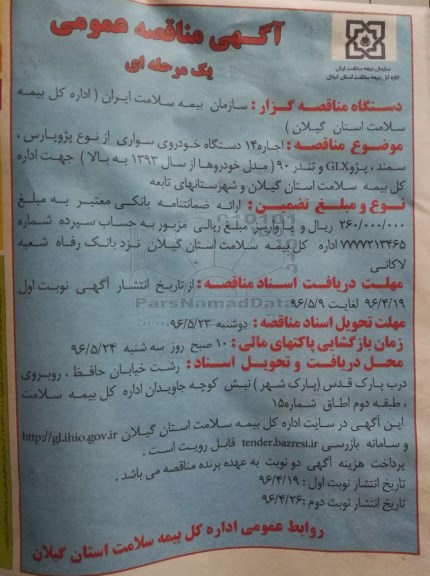 آگهی مناقصه عمومی
یک مرحله ای
سازمان بیمه سلامت ایران
اداره کل بیمه سلامت استان گیلان
دستگاه مناقصه گزار : سازمان بیمه سلامت ایران ( اداره کل بیمه
سلامت استان گیلان )
موضوع مناقصه : اجاره ۱۴ دستگاه خودروی سواری از نوع پژوپارس ،
سمند ، پژو GLX و تندر ۹۰ ( مدل خودروها از سال ۱۳۹۳ به بالا ) جهت اداره
کل بیمه سلامت استان گیلان و شهرستانهای تابعه
نوع و مبلغ تضمین : ارائه ضمانتنامه بانکی معتبر به مبلغ
۲۶۰/۰۰۰/۰۰۰ ریال و یا واریز مبلغ ریالی مزبور به حساب سپرده شماره
۷۷۷۷۲۱۳۴۶۵ اداره کل بیمه سلامت استان گیلان نزد بانک رفاه شعبه
لاکانی
مهلت دریافت اسناد مناقصه : از تاریخ انتشار آگهی نوبت اول
۹۶/۴/۱۹ لغایت ۹۶/۵/۹
ParsNamadData
مهلت تحویل اسناد مناقصه : دوشنبه ۹۶/۵/۲۳
زمان بازگشایی پاکتهای مالی : ۱۰ صبح روز سه شنبه ۹۶/۵/۲۴
محل دریافت و تحویل اسناد : رشت خیابان حافظ ، روبروی
درب پارک قدس (پارک شهر ) نبش کوچه جاویدان اداره کل بیمه سلامت
، طبقه دوم اطاق شماره ۱۵
این آگهی در سایت اداره کل بیمه سلامت استان گیلان http://gl.ihio.gov.ir
و سامانه بازرسی tender.bazresi.ir قابل رویت است .
پرداخت هزینه آگهی دو نوبت به عهده برنده مناقصه می باشد .
تاریخ انتشار نوبت اول : ۹۶/۴/۱۹
تاریخ انتشار نوبت دوم : ۹۶/۴/۲۶
روابط عمومی اداره کل بیمه سلامت استان گیلان